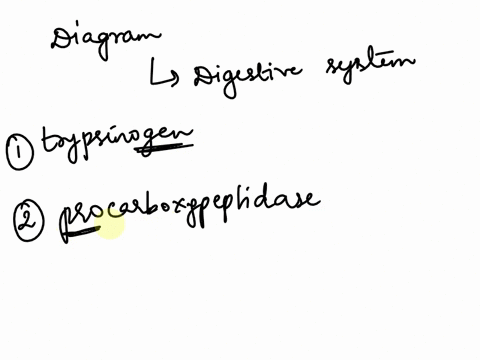 Diagram
↳ Digestive system
① trypsinogen
② procarboxypeptidase